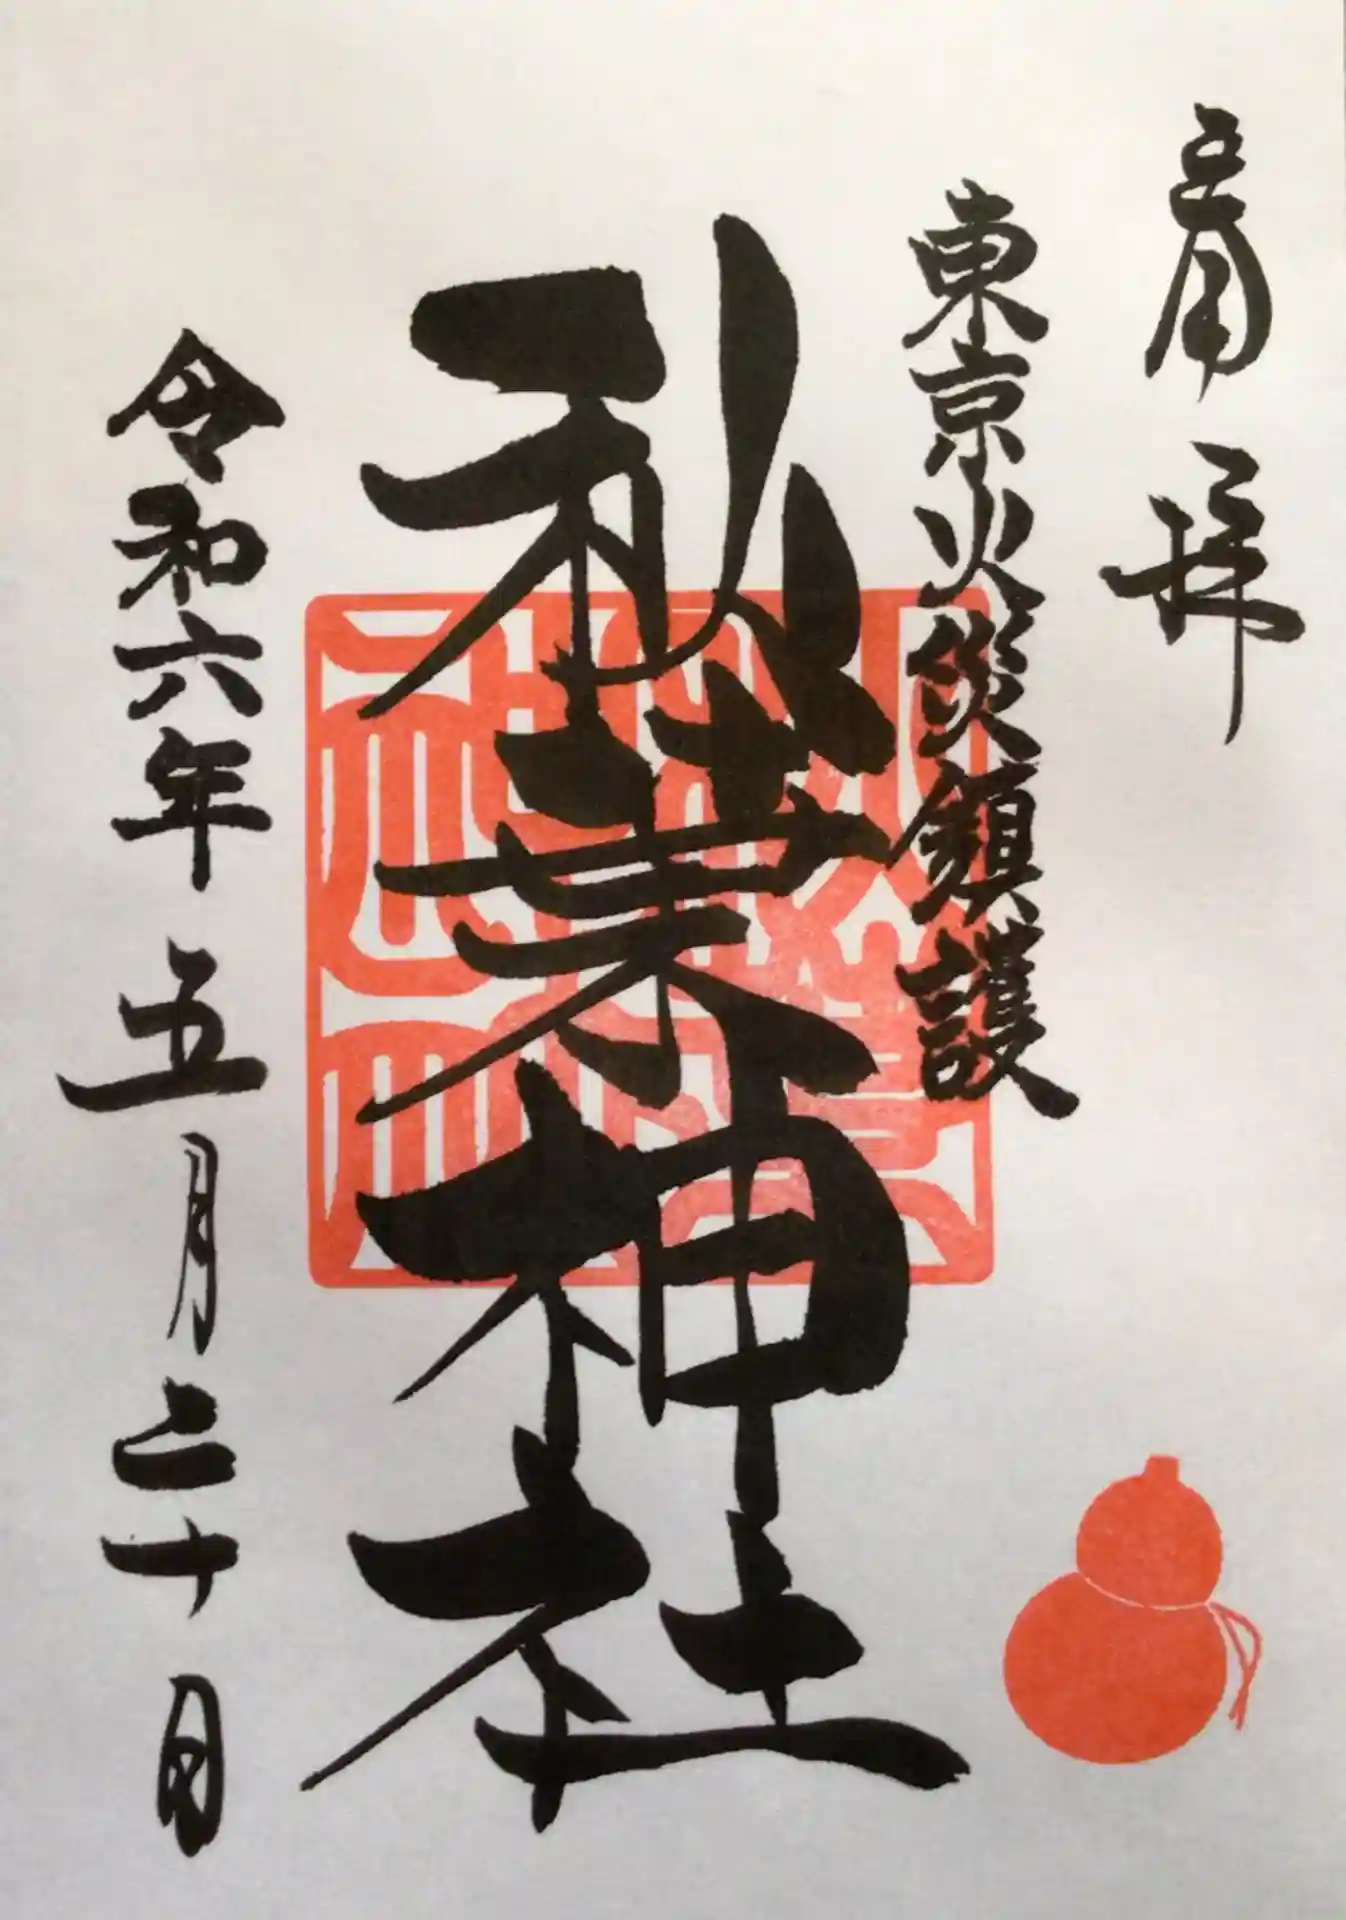 斎拝
東京火災鎮護
秋葉神社
令和六年五月二十日